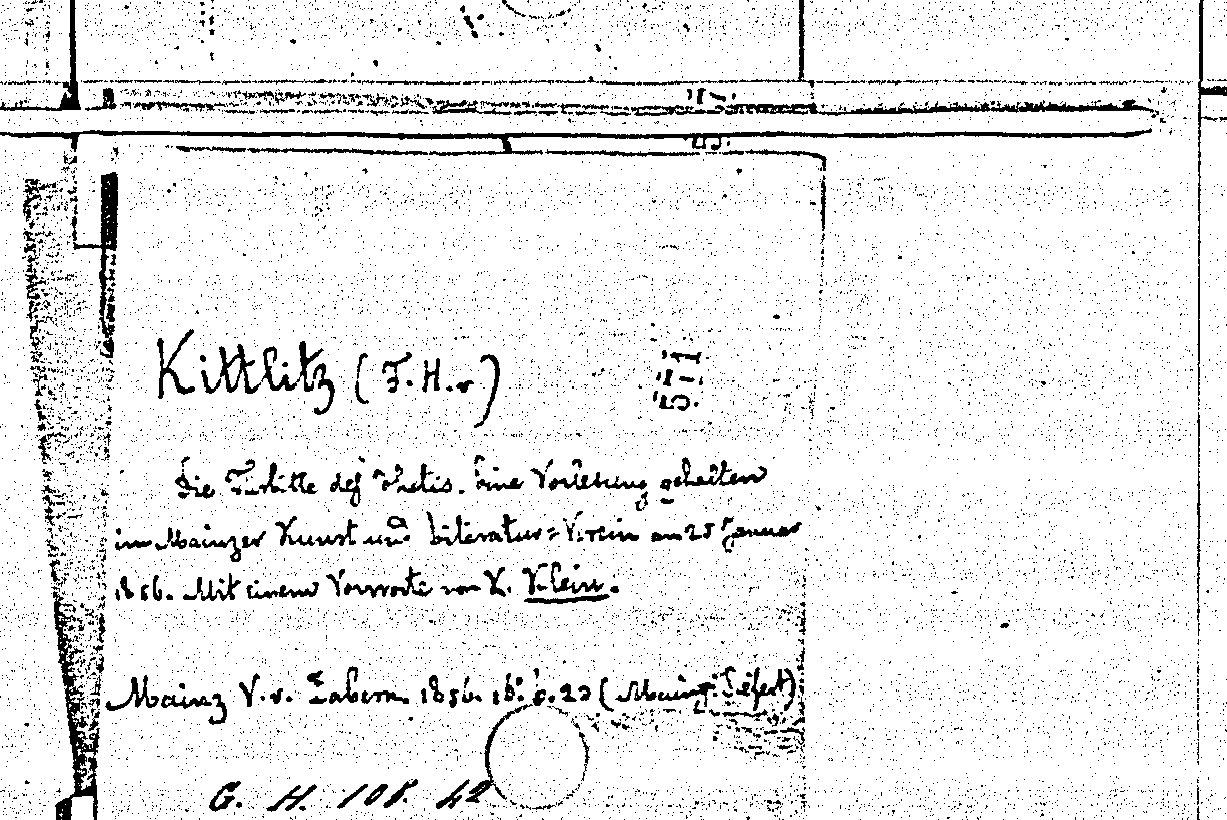 Kittlitz (F. H. v)
Die Fürbitte der Thetis. Eine Vorlesung gehalten
im Mainzer Kunst und Literatur=Verein am 25 Januar
1856. Mit einem Vorworte von K. Klein.
Mainz V. v. Zabern. 1856. 16° S. 23 (Mainz: Seifert)
G. H. 108. 42